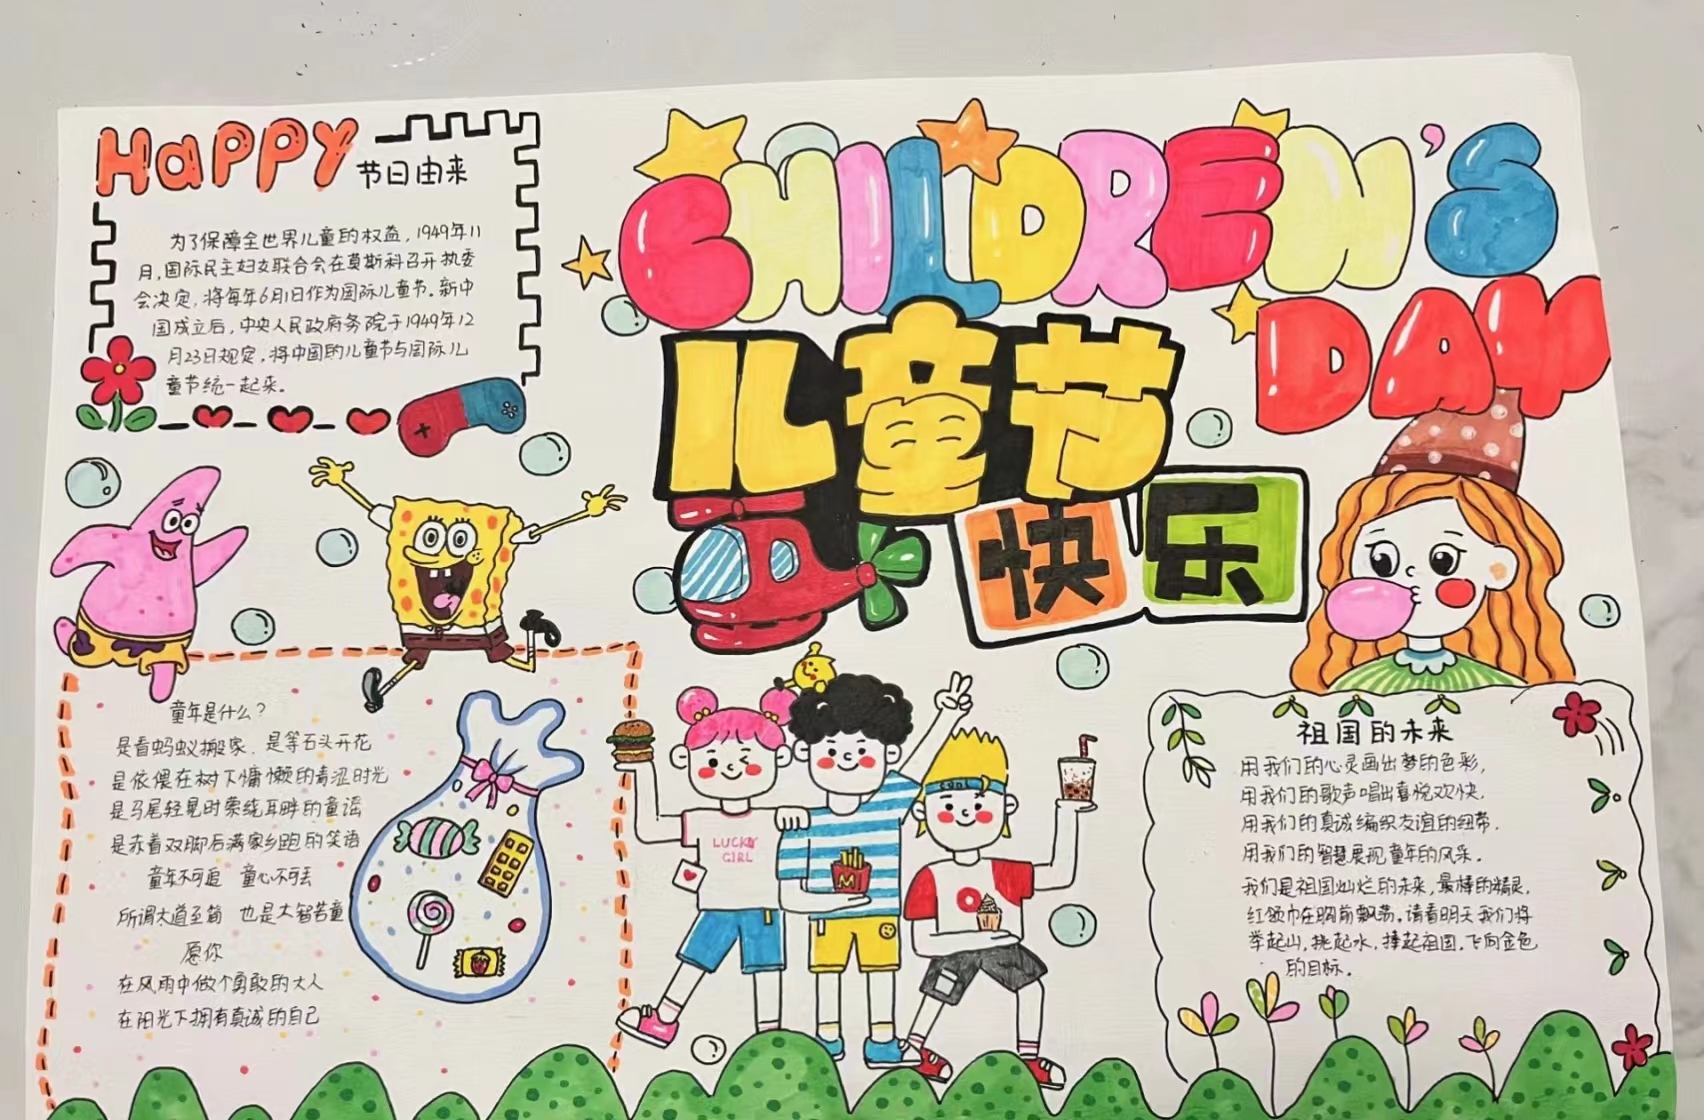 HaPPY
节日由来
为了保障全世界儿童的权益，1949年11
月，国际民主妇女联合会在莫斯科召开执委
会决定，将每年6月1日作为国际儿童节。新中
国成立后，中央人民政府务院于1949年12
月23日规定，将中国的儿童节与国际儿
童节统一起来。
CHILDREN'S
DAY
儿童节
快乐
童年是什么？
是看蚂蚁搬家、是等石头开花
是依偎在树下慵懒的青涩时光
是马尾轻晃时萦绕耳畔的童谣
是赤着双脚后满家乡跑的笑语
童年不可追 童心不可丢
所谓大道至简 也是大智若童
愿你
在风雨中做个勇敢的大人
在阳光下拥有真诚的自己
LUCKY
GIRL
cool
M
祖国的未来
用我们的心灵画出梦的色彩，
用我们的歌声唱出喜悦欢快，
用我们的真诚编织友谊的纽带，
用我们的智慧展现童年的风采。
我们是祖国灿烂的未来，最棒的精灵，
红领巾在胸前飘荡。请看明天我们将
举起山，挑起水，捧起祖国，飞向金色
的目标。